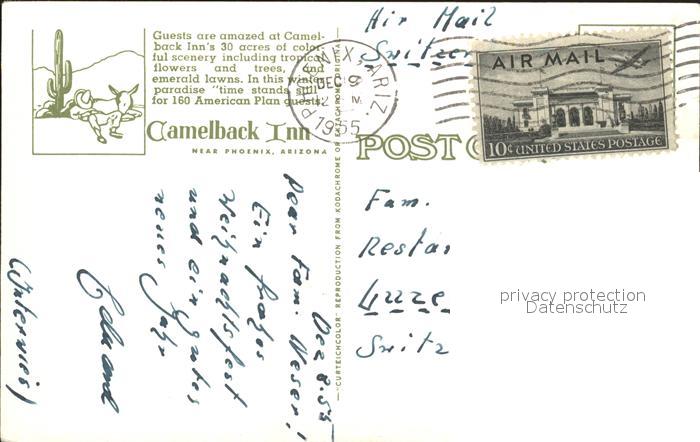 Guests are amazed at Camel-
back Inn's 30 acres of color-
ful scenery including tropical
flowers and trees, and
emerald lawns. In this winter
paradise "time stands still"
for 160 American Plan guests.
Camelback Inn
NEAR PHOENIX, ARIZONA
Dec 8. 55
Dear Fam. Weser!
Ein frohes
Weihnachtsfest
und ein gutes
neues Jahr
Edmund
"CURTEICHCOLOR" REPRODUCTION FROM KODACHROME OR EKTACHROME ORIGINAL
Air Mail
PHOENIX, ARIZ.
DEC 9
1955
AIR MAIL
10¢ UNITED STATES POSTAGE
POST
Fam.
Switz
privacy protection
Datenschutz